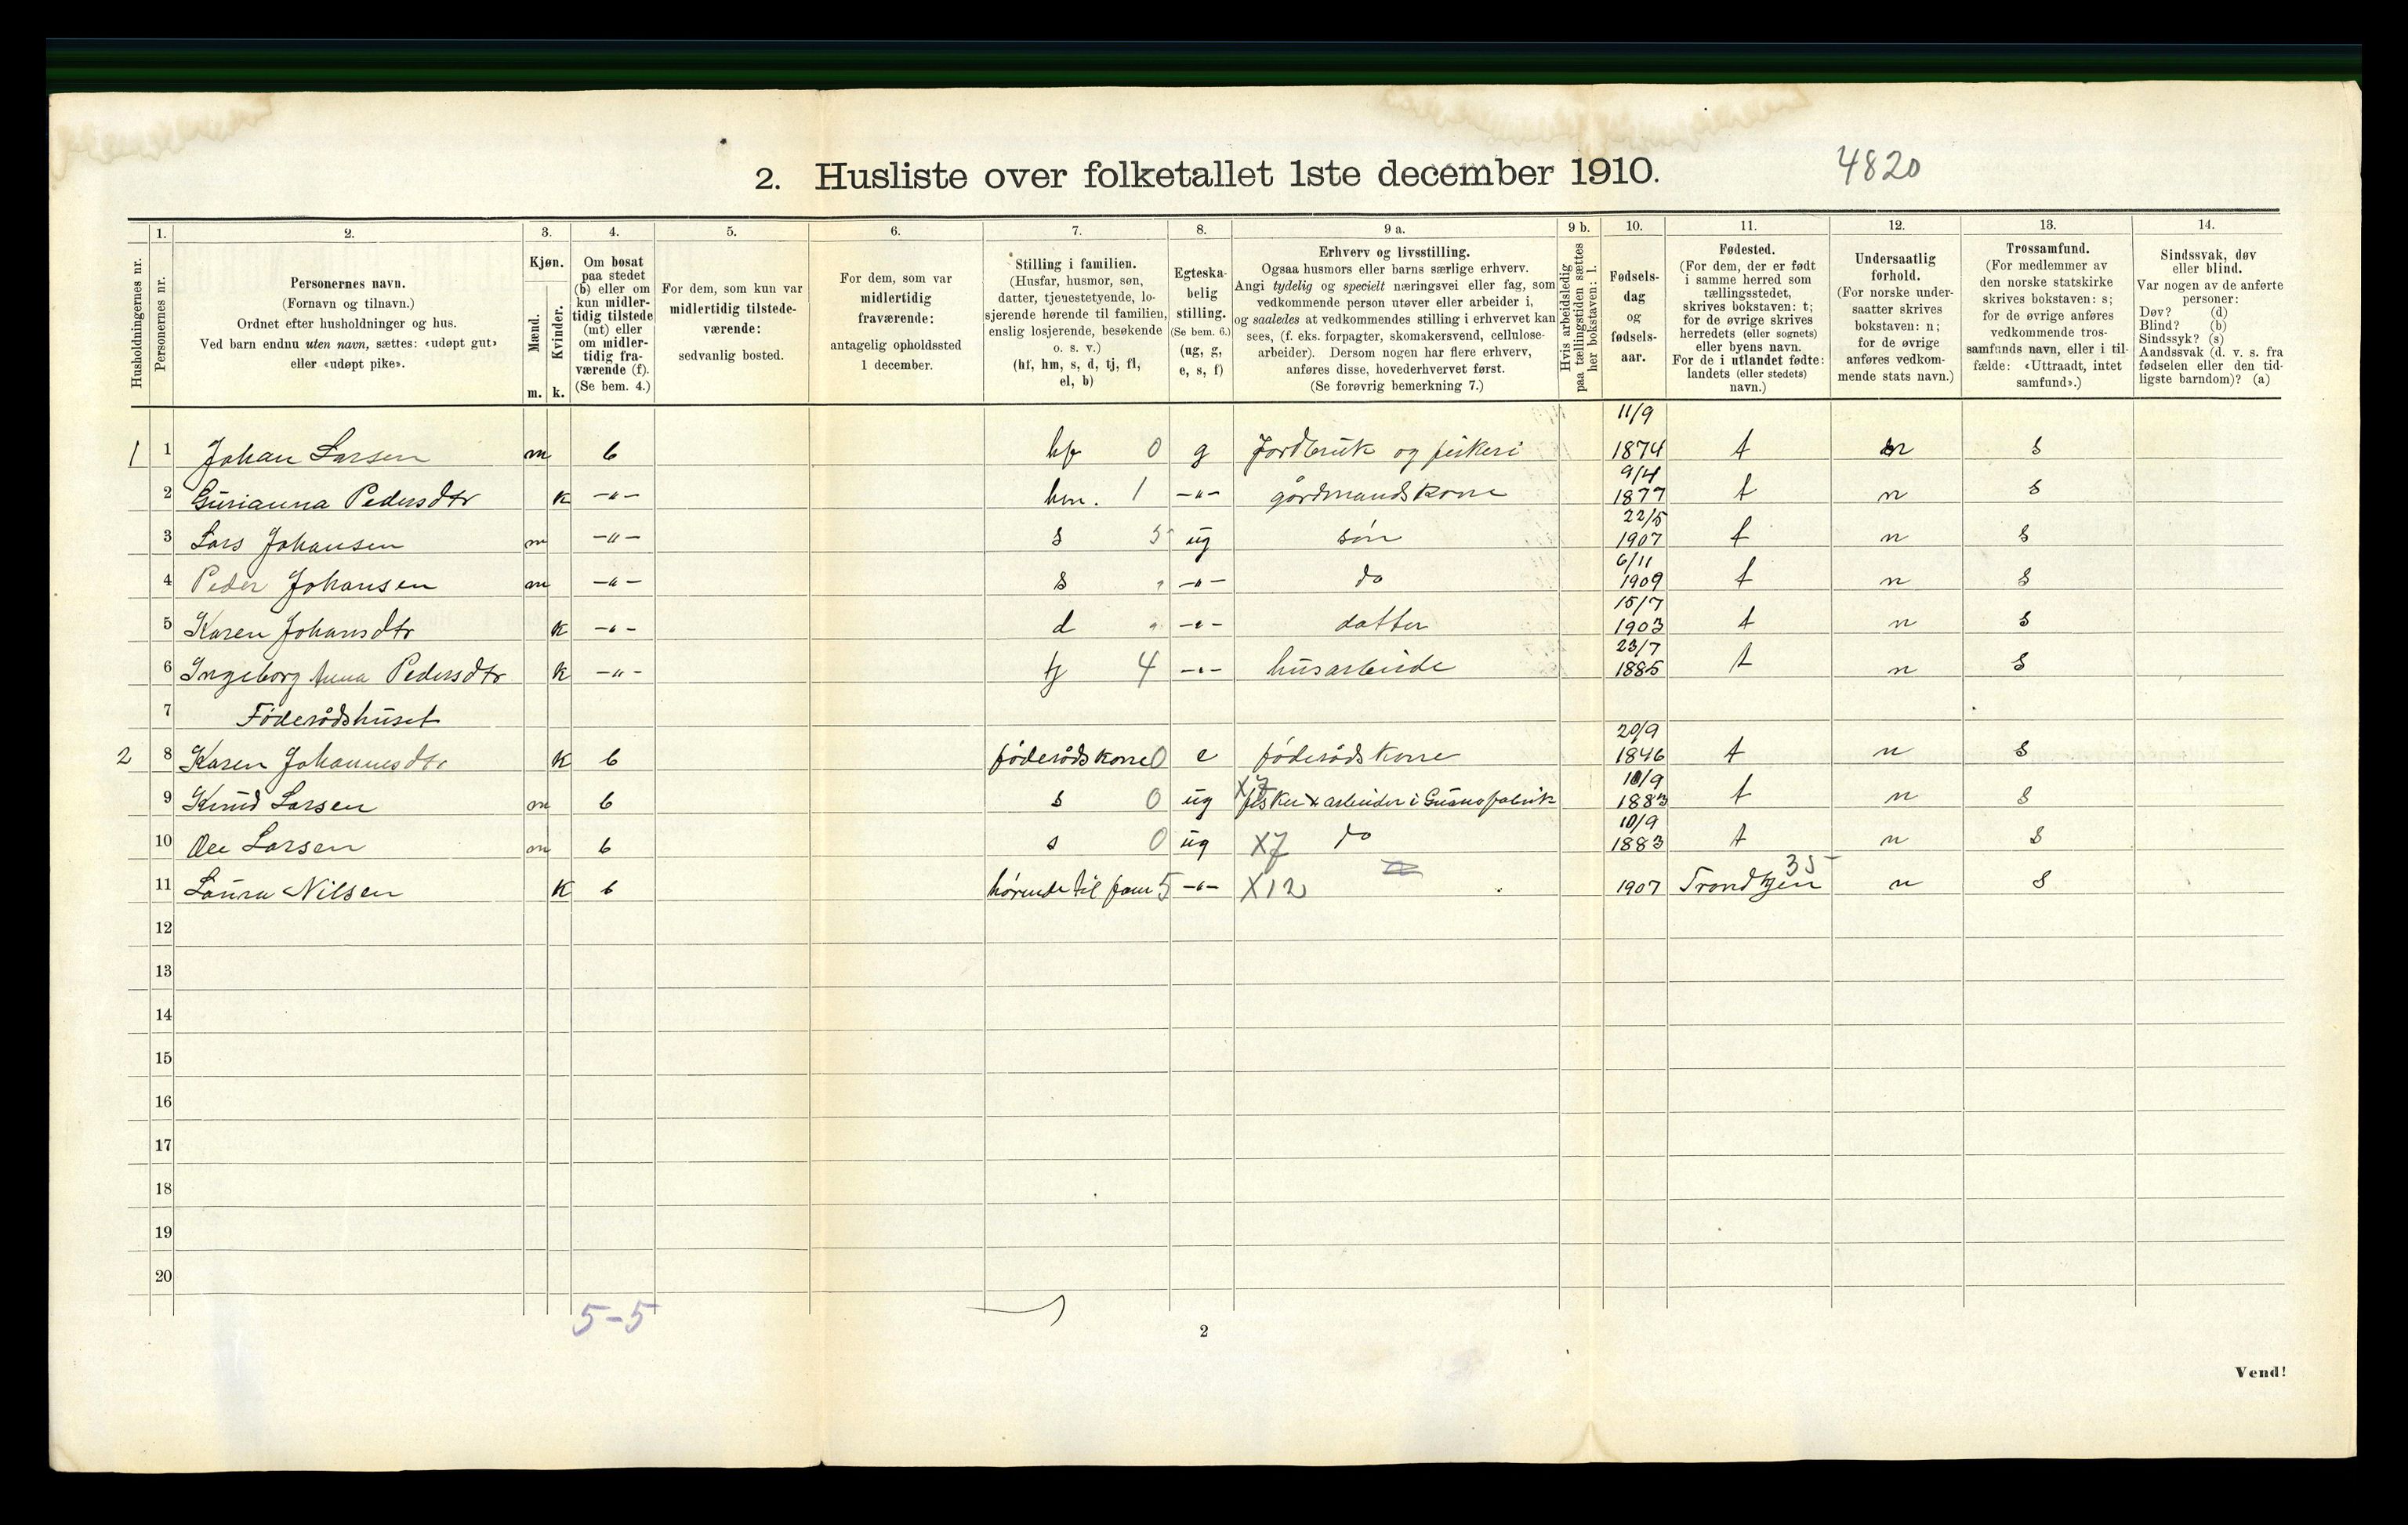 2. Husliste over folketallet 1ste december 1910. 4820
1. 2. 3. 4. 5. 6. 7. 8. 9 a. 9 b. 10. 11. 12. 13. 14.
Husholdningernes nr.
Personernes nr.
Personernes navn.
(Fornavn og tilnavn.)
Ordnet efter husholdninger og hus.
Ved barn endnu uten navn, sættes: «udøpt gut»
eller «udøpt pike».
Kjøn.
Mænd.
Kvinder.
m. k.
Om bosat
paa stedet
(b) eller om
kun midler-
tidig tilstede
(mt) eller
om midler-
tidig fra-
værende (f).
(Se bem. 4.)
For dem, som kun var
midlertidig tilstede-
værende:
sedvanlig bosted.
For dem, som var
midlertidig
fraværende:
antagelig opholdssted
1 december.
Stilling i familien.
(Husfar, husmor, søn,
datter, tjenestetyende, lo-
sjerende hørende til familien,
enslig losjerende, besøkende
o. s. v.)
(hf, hm, s, d, tj, fl,
el, b)
Egteska-
belig
stilling.
(Se bem. 6.)
(ug, g,
e, s, f)
Erhverv og livsstilling.
Ogsaa husmors eller barns særlige erhverv.
Angi tydelig og specielt næringsvei eller fag, som
vedkommende person utøver eller arbeider i,
og saaledes at vedkommendes stilling i erhvervet kan
sees, (f. eks. forpagter, skomakersvend, cellulose-
arbeider). Dersom nogen har flere erhverv,
anføres disse, hovederhvervet først.
(Se forøvrig bemerkning 7.)
Hvis arbeidsledig
paa tællingstiden sættes
her bokstaven: l.
Fødsels-
dag
og
fødsels-
aar.
Fødested.
(For dem, der er født
i samme herred som
tællingsstedet,
skrives bokstaven: t;
for de øvrige skrives
herredets (eller sognets)
eller byens navn.
For de i utlandet fødte:
landets (eller stedets)
navn.)
Undersaatlig
forhold.
(For norske under-
saatter skrives
bokstaven: n;
for de øvrige
anføres vedkom-
mende stats navn.)
Trossamfund.
(For medlemmer av
den norske statskirke
skrives bokstaven: s;
for de øvrige anføres
vedkommende tros-
samfunds navn, eller i til-
fælde: «Uttraadt, intet
samfund».)
Sindssvak, døv
eller blind.
Var nogen av de anførte
personer:
Døv? (d)
Blind? (b)
Sindssyk? (s)
Aandssvak (d. v. s. fra
fødselen eller den tid-
ligste barndom)? (a)
1 1 Johan Larsen m b hf 0 g Jordbruk og fiskeri 11/9 1874 t n s
2 Gurianna Pedersdtr k -"- hm. 1 -"- gårdmandskone 9/4 1877 t n s
3 Lars Johansen m -"- s 5 ug søn 22/5 1907 t n s
4 Peder Johansen m -"- s " -"- do 6/11 1909 t n s
5 Karen Johansdtr k -"- d " -"- datter 15/7 1903 t n s
6 Ingeborg Anna Pedersdtr k -"- tj 4 -"- husarbeide 23/7 1885 t n s
7 Føderådshuset
2 8 Karen Johannesdtr k b føderådskone 0 e føderådskone 20/9 1846 t n s
9 Knud Larsen m b s 0 ug X7 fisker & arbeider i Guanofabrik 10/9 1883 t n s
10 Ole Larsen m b s 0 ug X7 do 10/9 1883 t n s
11 Laura Nilsen k b hørende til fam 5 -"- X12 1907 Trondhjem 35 n s
12
13
14
15
16
17
18
19
20
5-5
2
Vend!